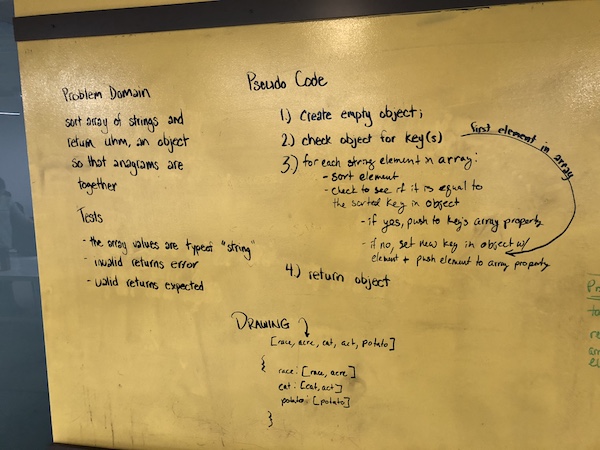 Problem Domain
sort array of strings and
return uhm, an object
so that anagrams are
together
Tests
- the array values are typeof "string"
- invalid returns error
- valid returns expected
Pseudo Code
1.) Create empty object;
2.) check object for key(s)
first element in array
3.) for each string element in array:
- sort element
- check to see if it is equal to
the sorted key in object
- if yes, push to key's array property
- if no, set new key in object w/
element + push element to array property
4.) return object
DRAWING
[race, acre, cat, act, potato]
{
race: [race, acre]
cat: [cat, act]
potato: [potato]
}